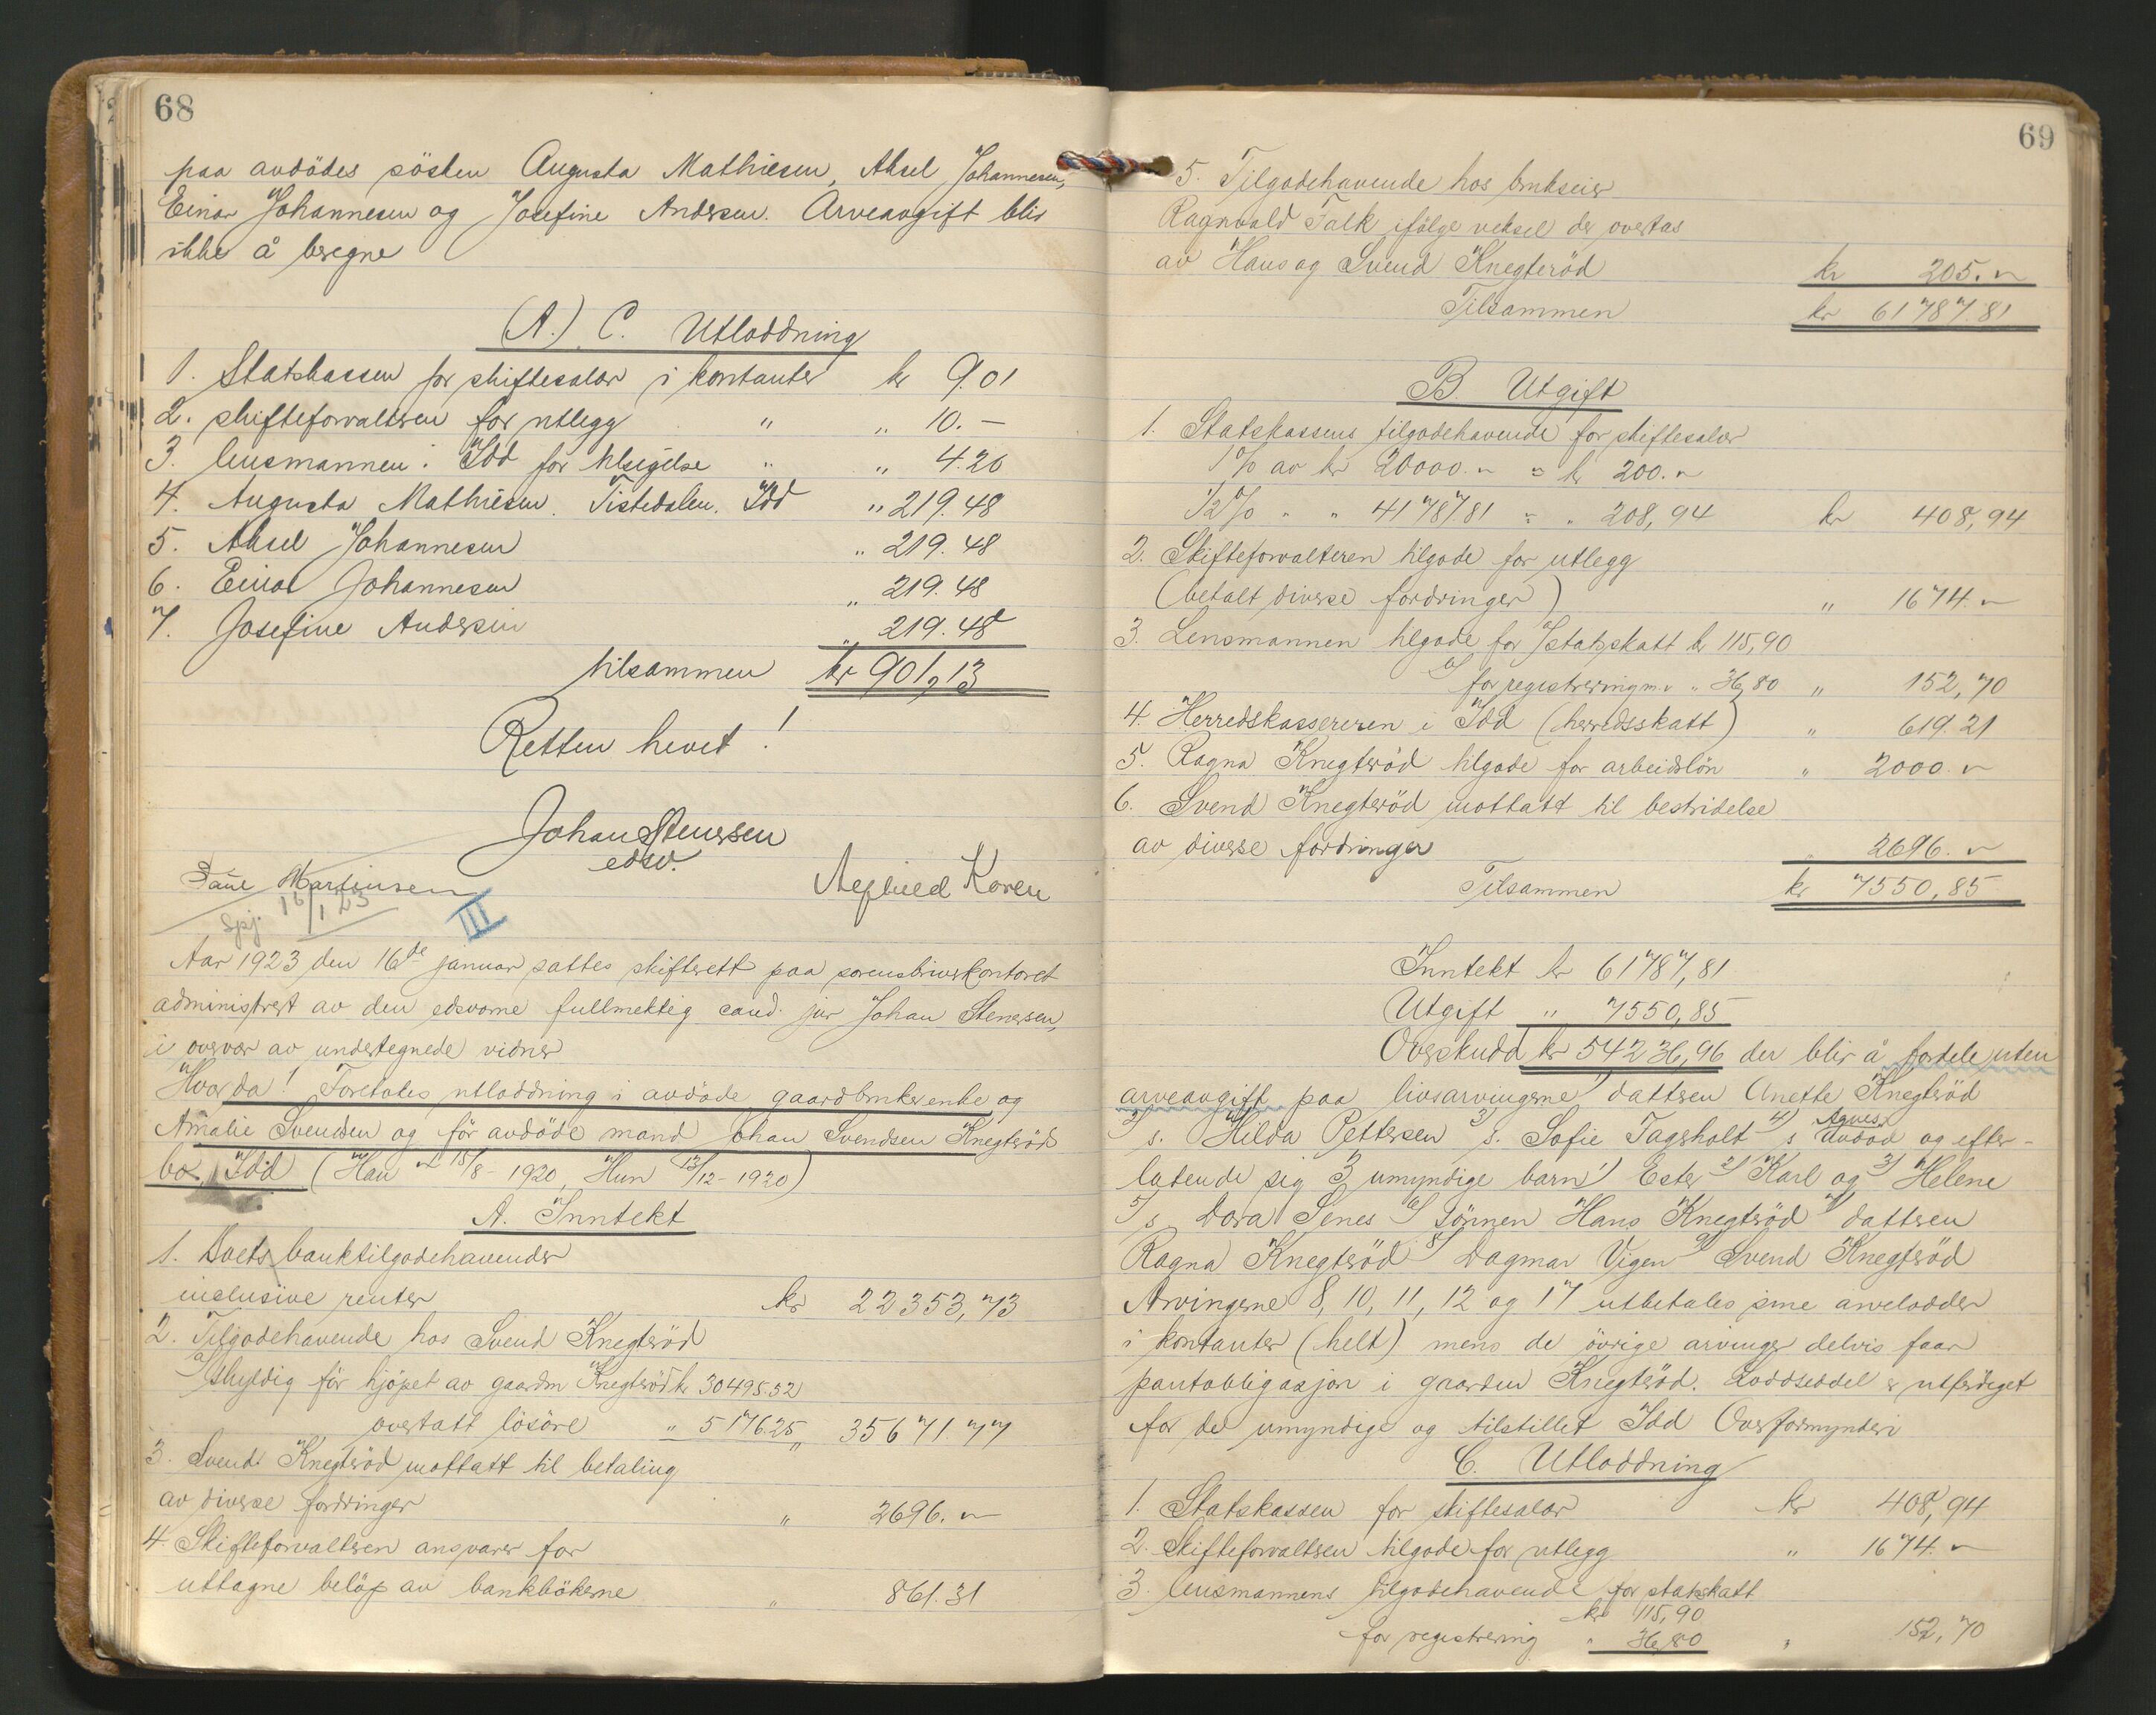 68
paa avdödes sösken Augusta Mathiesen, Aksel Johannesen,
Einar Johannesen og Josefine Andersen. Arveavgift blir
ikke å beregne
(A.) C. Utloddning
1. Statskassen for skiftesalær i kontanter kr 9.01
2. skifteforvalteren for utlegg " " 10.—
3. lensmannen i Idd for tilsigelse " " 4.20
4. Augusta Mathiesen. Tistedalen. Idd " 219.48
5. Aksel Johannesen " 219.48
6. Einar Johannesen " 219.48
7. Josefine Andersen " 219.48
tilsammen kr 901,13
Retten hevet!
Johan Stenersen
edsv.
Paul Martinsen
Koren
16/1 23
III
Aar 1923 den 16de januar sattes skifterett paa sorenskriverkontoret
administrert av den edsvorne fullmektig cand. jur Johan Stenersen,
i overvær av undertegnede vidner
Hvorda! Foretokes utloddning i avdöde gaardbrukerenke og
Amalie Svendsen og för avdöde mand Johan Svendsen Knegteröds
bo, Idd (Han 15/8-1920, Hun 13/12-1920)
A. Inntekt
1. Boets banktilgodehavender
inclusive renter kr 22353,73
2. Tilgodehavende hos Svend Knegteröd
a) Skyldig för kjöpet av gaarden Knegteröd kr 30495.52
overtatt lösöre " 5176.25 " 35671.77
3. Svend Knegteröd mottatt til betaling
av diverse fordringer " 2696.—
4 Skifteforvalteren ansvarer for
uttagne belöp av bankbökerne " 861.31
69
5. Tilgodehavende hos brukseier
Ragnvald Falk ifölge veksel der overtas
av Hans og Svend Knegteröd kr 205.—
Tilsammen kr 61787.81
B. Utgift
1. Statskassens tilgodehavende for skiftesalær
1% av kr 20000.— = kr 200.—
1/2% " " 41787.81 = " 208,94 kr 408,94
2. Skifteforvalteren tilgode for utlegg
(betalt diverse fordringer) " 1674.—
3. Lensmannen tilgode for a/ statsskatt kr 115,90
b/ for registrering m.v " 36,80 " 152,70
4. Herredskassereren i Idd (herredsskatt) " 619.21
5. Ragna Knegteröd tilgode for arbeidslön " 2000.—
6. Svend Knegteröd mottatt til bestridelse
av diverse fordringer " 2696.—
Tilsammen kr 7550,85
Inntekt kr 61787,81
Utgift " 7550,85
Overskudd kr 54236,96 der blir å fordele uten
arveavgift paa livsarvingerne 1) datteren Anette Knegteröd
2) s. Hilda Pettersen 3) s. Sofie Tagsholt 4) s Agnes avdöd og efter-
latende sig 3 umyndige barn 1) Ester 2) Karl og 3) Helene
5) s. Dora Senes 6) sönnen Hans Knegteröd 7) datteren
Ragna Knegteröd 8) Dagmar Vigen 9) Svend Knegteröd
Arvingerne 8, 10, 11, 12 og 17 utbetales sine arvelodder
i kontanter (helt) mens de övrige arvinger delvis faar
pantobligasjon i gaarden Knegteröd. Loddseddel er utferdiget
for de umyndige og tilstillet Idd Overformynderi
C. Utloddning
1. Statskassen for skiftesalær kr 408,94
2. Skifteforvalteren tilgode for utlegg " 1674.—
3. lensmannens tilgodehavende for statsskatt
kr 115,90
for registrering " 36,80 " 152,70